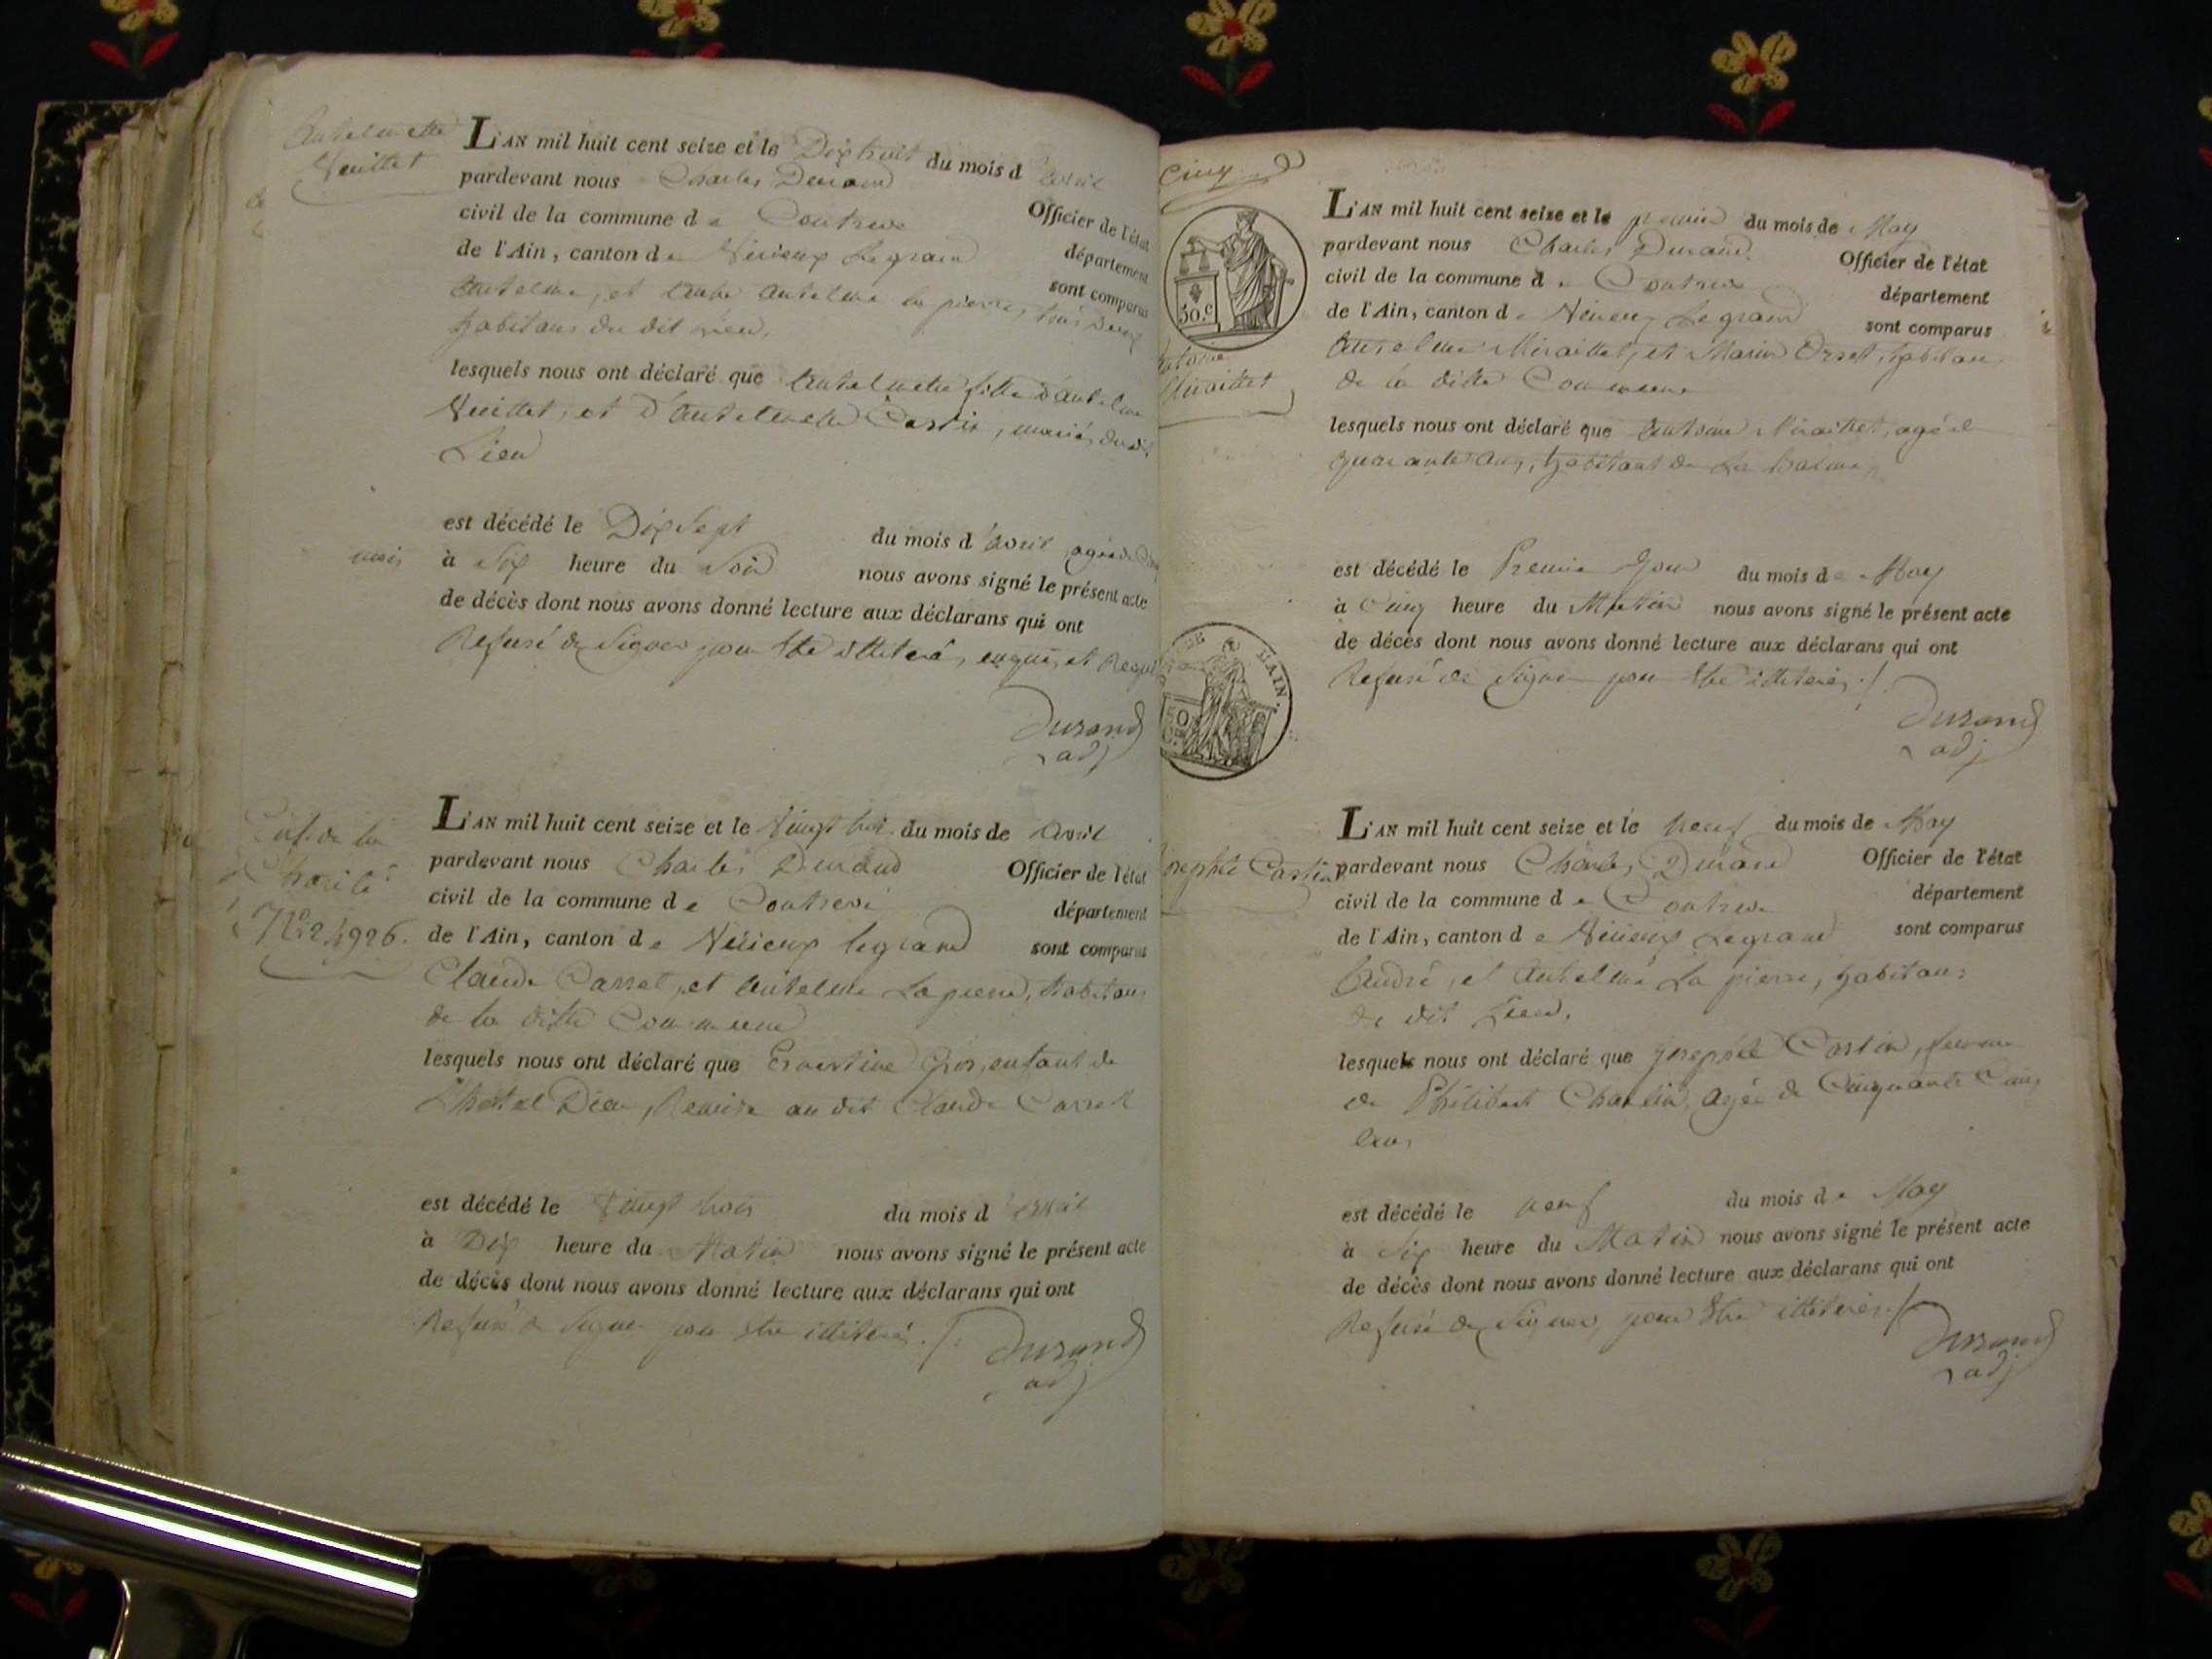 Antelmette
Veuillet
L'AN mil huit cent seize et le Dixhuit du mois d'avril
pardevant nous Charles Durand Officier de l'état
civil de la commune de Contrevoz département
de l'Ain, canton de Virieux Legrand sont comparus
Antelme, et autre antelme la pierre, tous Deux
habitans du dit Lieu.
lesquels nous ont déclaré que Antelmette fille d'antelme
Veuillet, et d'Antelmette Costin, mariés du dit
Lieu
est décédé le Dix Sept du mois d'avril, agée de
mois à Six heure du Soir nous avons signé le présent acte
de décès dont nous avons donné lecture aux déclarans qui ont
Refusé de Signer pour être illiteré, enquis, et Requis
Durand
adj
Enf. de la
Charité
N° 24926.
L'AN mil huit cent seize et le Vingt trois du mois de Avril
pardevant nous Charles Durand Officier de l'état
civil de la commune de Contrevoz département
de l'Ain, canton de Virieux legrand sont comparus
Claude Carret, et Antelme La pierre, habitans
de la ditte Commune
lesquels nous ont déclaré que Ernestine Gros, enfant de
L'hotel Dieu, Remise au dit Claude Carret
est décédé le Vingt trois du mois d'avril
à Dix heure du Matin nous avons signé le présent acte
de décès dont nous avons donné lecture aux déclarans qui ont
Refusé de Signer pour être illiteré ./.
Durand
adj
Cinq
30.c
antoine
Miraillet
L'AN mil huit cent seize et le premier du mois de May
pardevant nous Charles Durand Officier de l'état
civil de la commune de Contrevoz département
de l'Ain, canton de Virieux Legrand sont comparus
Antelme Miraillet, et Marin Orset, habitans
de la ditte Commune
lesquels nous ont déclaré que Antoine Miraillet, agé de
quarante ans, habitant de La balme,
est décédé le Premier Jour du mois de May
à Cinq heure du Matin nous avons signé le présent acte
de décès dont nous avons donné lecture aux déclarans qui ont
Refusé de Signer pour être illiterés ./.
Durand
adj
DE L'AIN.
50
C.
Josephte Costin
L'AN mil huit cent seize et le neuf du mois de May
pardevant nous Charles Durand Officier de l'état
civil de la commune de Contrevoz département
de l'Ain, canton de Virieux Legrand sont comparus
André, et Antelme La pierre, habitans
du dit Lieu.
lesquels nous ont déclaré que Josephte Costin, femme
de Philibert Charlin, agée de Cinquante Cinq
ans,
est décédé le neuf du mois de May
à Six heure du Matin nous avons signé le présent acte
de décès dont nous avons donné lecture aux déclarans qui ont
Refusé de Signer, pour être illiterés ./.
Durand
adj